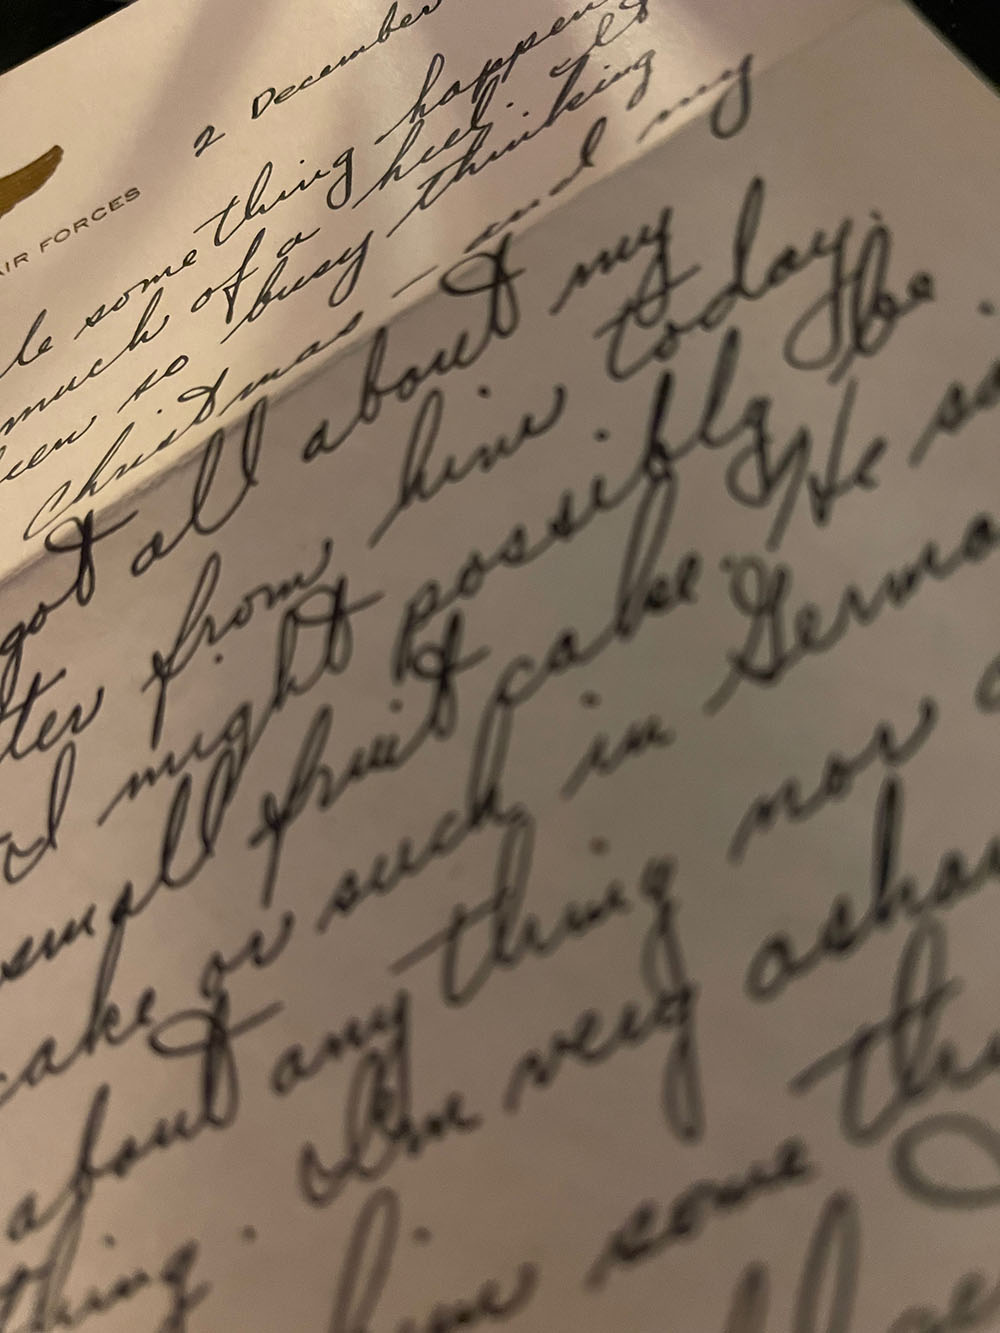 2 December
AIR FORCES
le some thing happen
much of a heel.
so busy thinking
Christmas — and my
got all about my
ter from him today.
I might possibly be
small fruit cake. He sa
cake or such in Germa
about any thing nor
thing. I'm very asha
him some thi